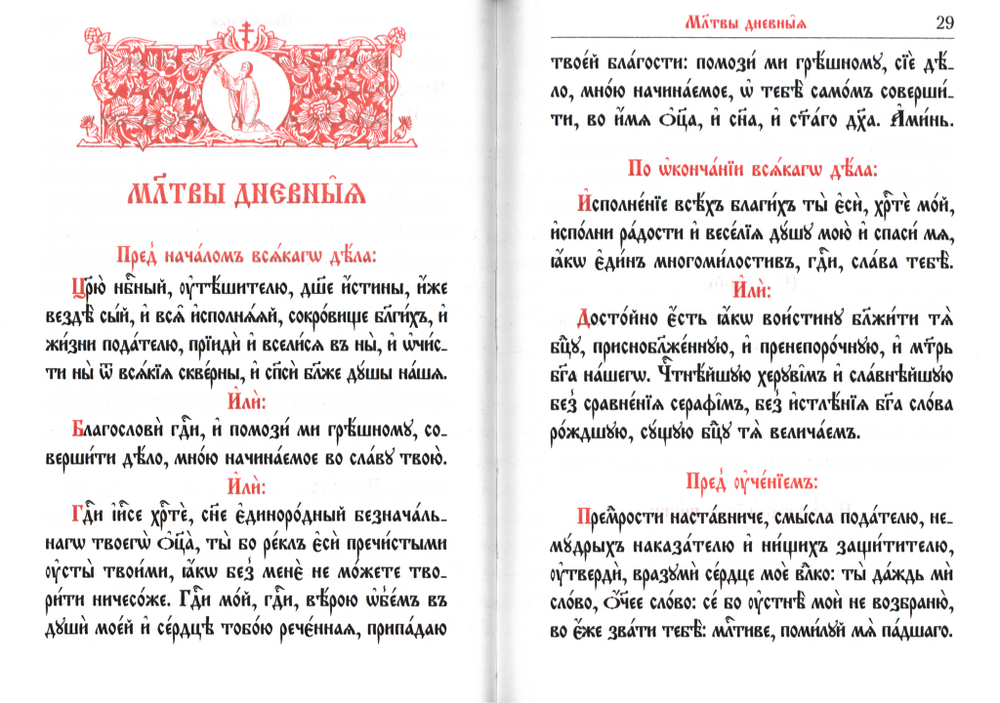 МЛ҃ТВЫ ДНЕВНЫ̑Ѧ
Пред̾ нача́ломъ всѧ́кагѡ дѣ́ла:
Цр҃ю̀ нб҃ный, ᲂу҆тѣ́шителю, дш҃е и҆́стины, и҆́же
вездѣ̀ сы́й, и҆ всѧ̑ и҆сполнѧ́ѧй, сокро́вище бл҃ги́хъ, и҆
жи́зни пода́телю, прїидѝ и҆ всели́сѧ въ ны̀, и҆ ѡ҆чи́с-
ти ны̀ ѿ всѧ́кїѧ скве́рны, и҆ сп҃сѝ бл҃же дꙋ́шы на́шѧ.
И҆лѝ:
Благословѝ гдⷭ҇и, и҆ помозѝ ми грѣ́шномꙋ, со-
верши́ти дѣ́ло, мно́ю начина́емое во сла́вꙋ твою̀.
И҆лѝ:
Гдⷭ҇и і҆и҃се хрⷭ҇тѐ, сн҃е є҆диноро́дный безнача́ль-
нагѡ твоегѡ̀ ѻ҆ц҃а̀, ты́ бо ре́клъ є҆сѝ пречи́стыми
ᲂу҆сты̀ твои́ми, ꙗ҆́кѡ без̾ менѐ не мо́жете тво-
ри́ти ничесо́же. Гдⷭ҇и мо́й, гдⷭ҇и, вѣ́рою ѡ҆б̾е́мъ въ
дꙋшѝ мое́й и҆ се́рдцѣ тобо́ю рече́ннаѧ, припа́даю
Мл҃твы дневны̑ѧ 29
твое́й бла́гости: помозѝ ми грѣ́шномꙋ, сїѐ дѣ́-
ло, мно́ю начина́емое, ѡ҆ тебѣ̀ само́мъ соверши́-
ти, во и҆́мѧ ѻ҆ц҃а̀, и҆ сн҃а, и҆ ст҃а́гѡ дх҃а. А҆ми́нь.
По ѡ҆конча́нїи всѧ́кагѡ дѣ́ла:
И҆сполне́нїе всѣ́хъ благи́хъ ты̀ є҆сѝ, хрⷭ҇тѐ мо́й,
и҆спо́лни ра́дости и҆ весе́лїѧ дꙋ́шꙋ мою̀ и҆ спаси́ мѧ,
ꙗ҆́кѡ є҆ди́нъ многоми́лостивъ, гдⷭ҇и, сла́ва тебѣ̀.
И҆лѝ:
Досто́йно є҆́сть ꙗ҆́кѡ вои́стинꙋ бл҃жи́ти тѧ̀
бц҃ꙋ, присноблаже́ннꙋю, и҆ пренепоро́чнꙋю, и҆ мт҃рь
бг҃а на́шегѡ. Чтⷭ҇нѣ́йшꙋю херꙋві̑мъ и҆ сла́внѣйшꙋю
без̾ сравне́нїѧ серафі̑мъ, без̾ и҆стлѣ́нїѧ бг҃а сло́ва
ро́ждшꙋю, сꙋ́щꙋю бц҃ꙋ тѧ̀ велича́емъ.
Пред̾ ᲂу҆че́нїемъ:
Премⷣрости наста́вниче, смы́сла пода́телю, не-
мꙋ́дрыхъ наказа́телю и҆ ни́щихъ защи́тителю,
ᲂу҆твердѝ, вразꙋмѝ се́рдце моѐ влⷣко: ты̀ да́ждь мѝ
сло́во, ѻ҆́чее сло́во: се́ бо ᲂу҆стнѣ̀ моѝ не возбраню̀,
во є҆́же зва́ти тебѣ̀: млⷭ҇тиве, поми́лꙋй мѧ̀ па́дшаго.